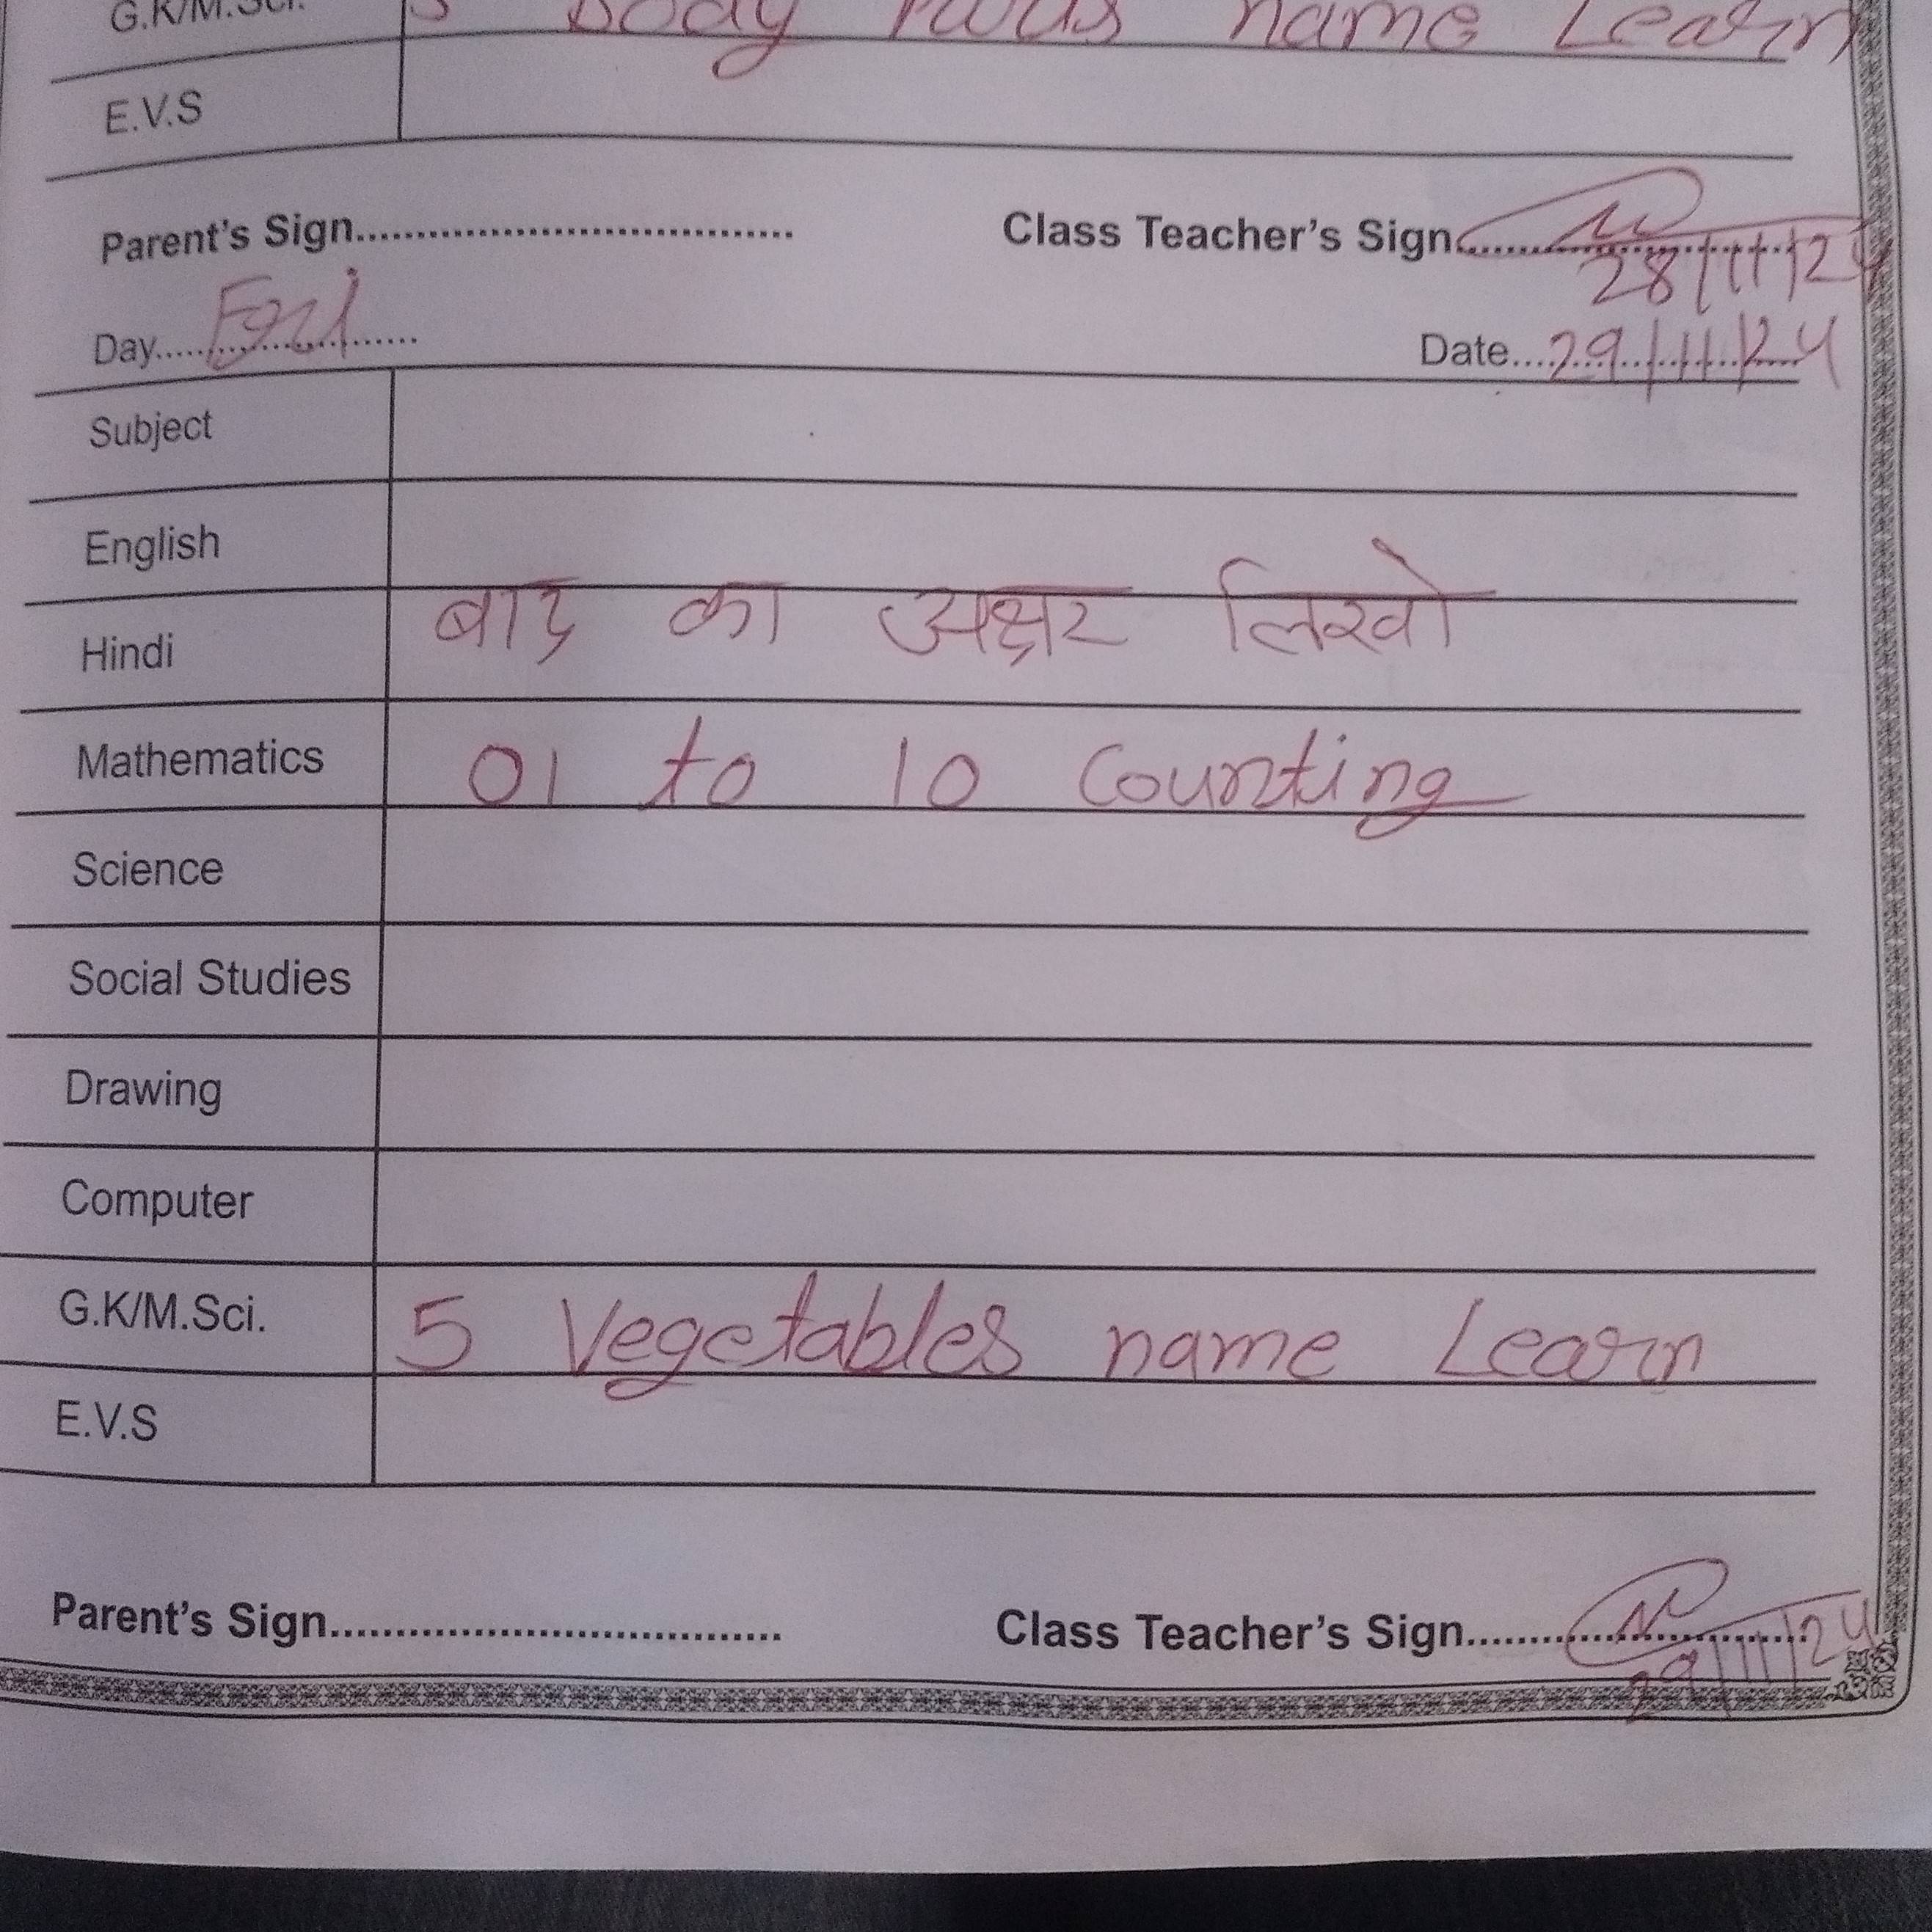 G.K/M.Sci. 5 Body Parts name Learn
E.V.S
Parent's Sign.................................... Class Teacher's Sign............................
28/11/24
Day.....Fri........ Date...29/11/24
Subject
English
Hindi बाद का अक्षर लिखो
Mathematics 01 to 10 Counting
Science
Social Studies
Drawing
Computer
G.K/M.Sci. 5 Vegetables name Learn
E.V.S
Parent's Sign.................................... Class Teacher's Sign............................
29/11/24